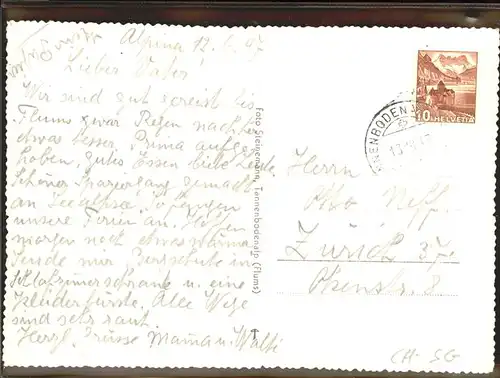 Alpina 12. 47
Lieber Vater!
Wir sind gut gereist bis
Flums zwar Regen nachher
etwas besser. Prima aufge-
hoben, gutes Essen liebe Leute
Schöner Spaziergang gemacht
an Seealpsee. So
unsere Ferien an.
morgen noch etwas
nur Bergschuhe im
Schlafzimmerschrank u. eine
Kleiderbürste. Alle Wege
sind sehr rauh.
Herzl. Grüsse Mama u. Walti
Foto Steigmann, Tannenbodenalp (Flums)
10 HELVETIA
NENBODENALP
Herrn
Otto Neff.
Zürich 37.
Okenstr. 8
CH-SG